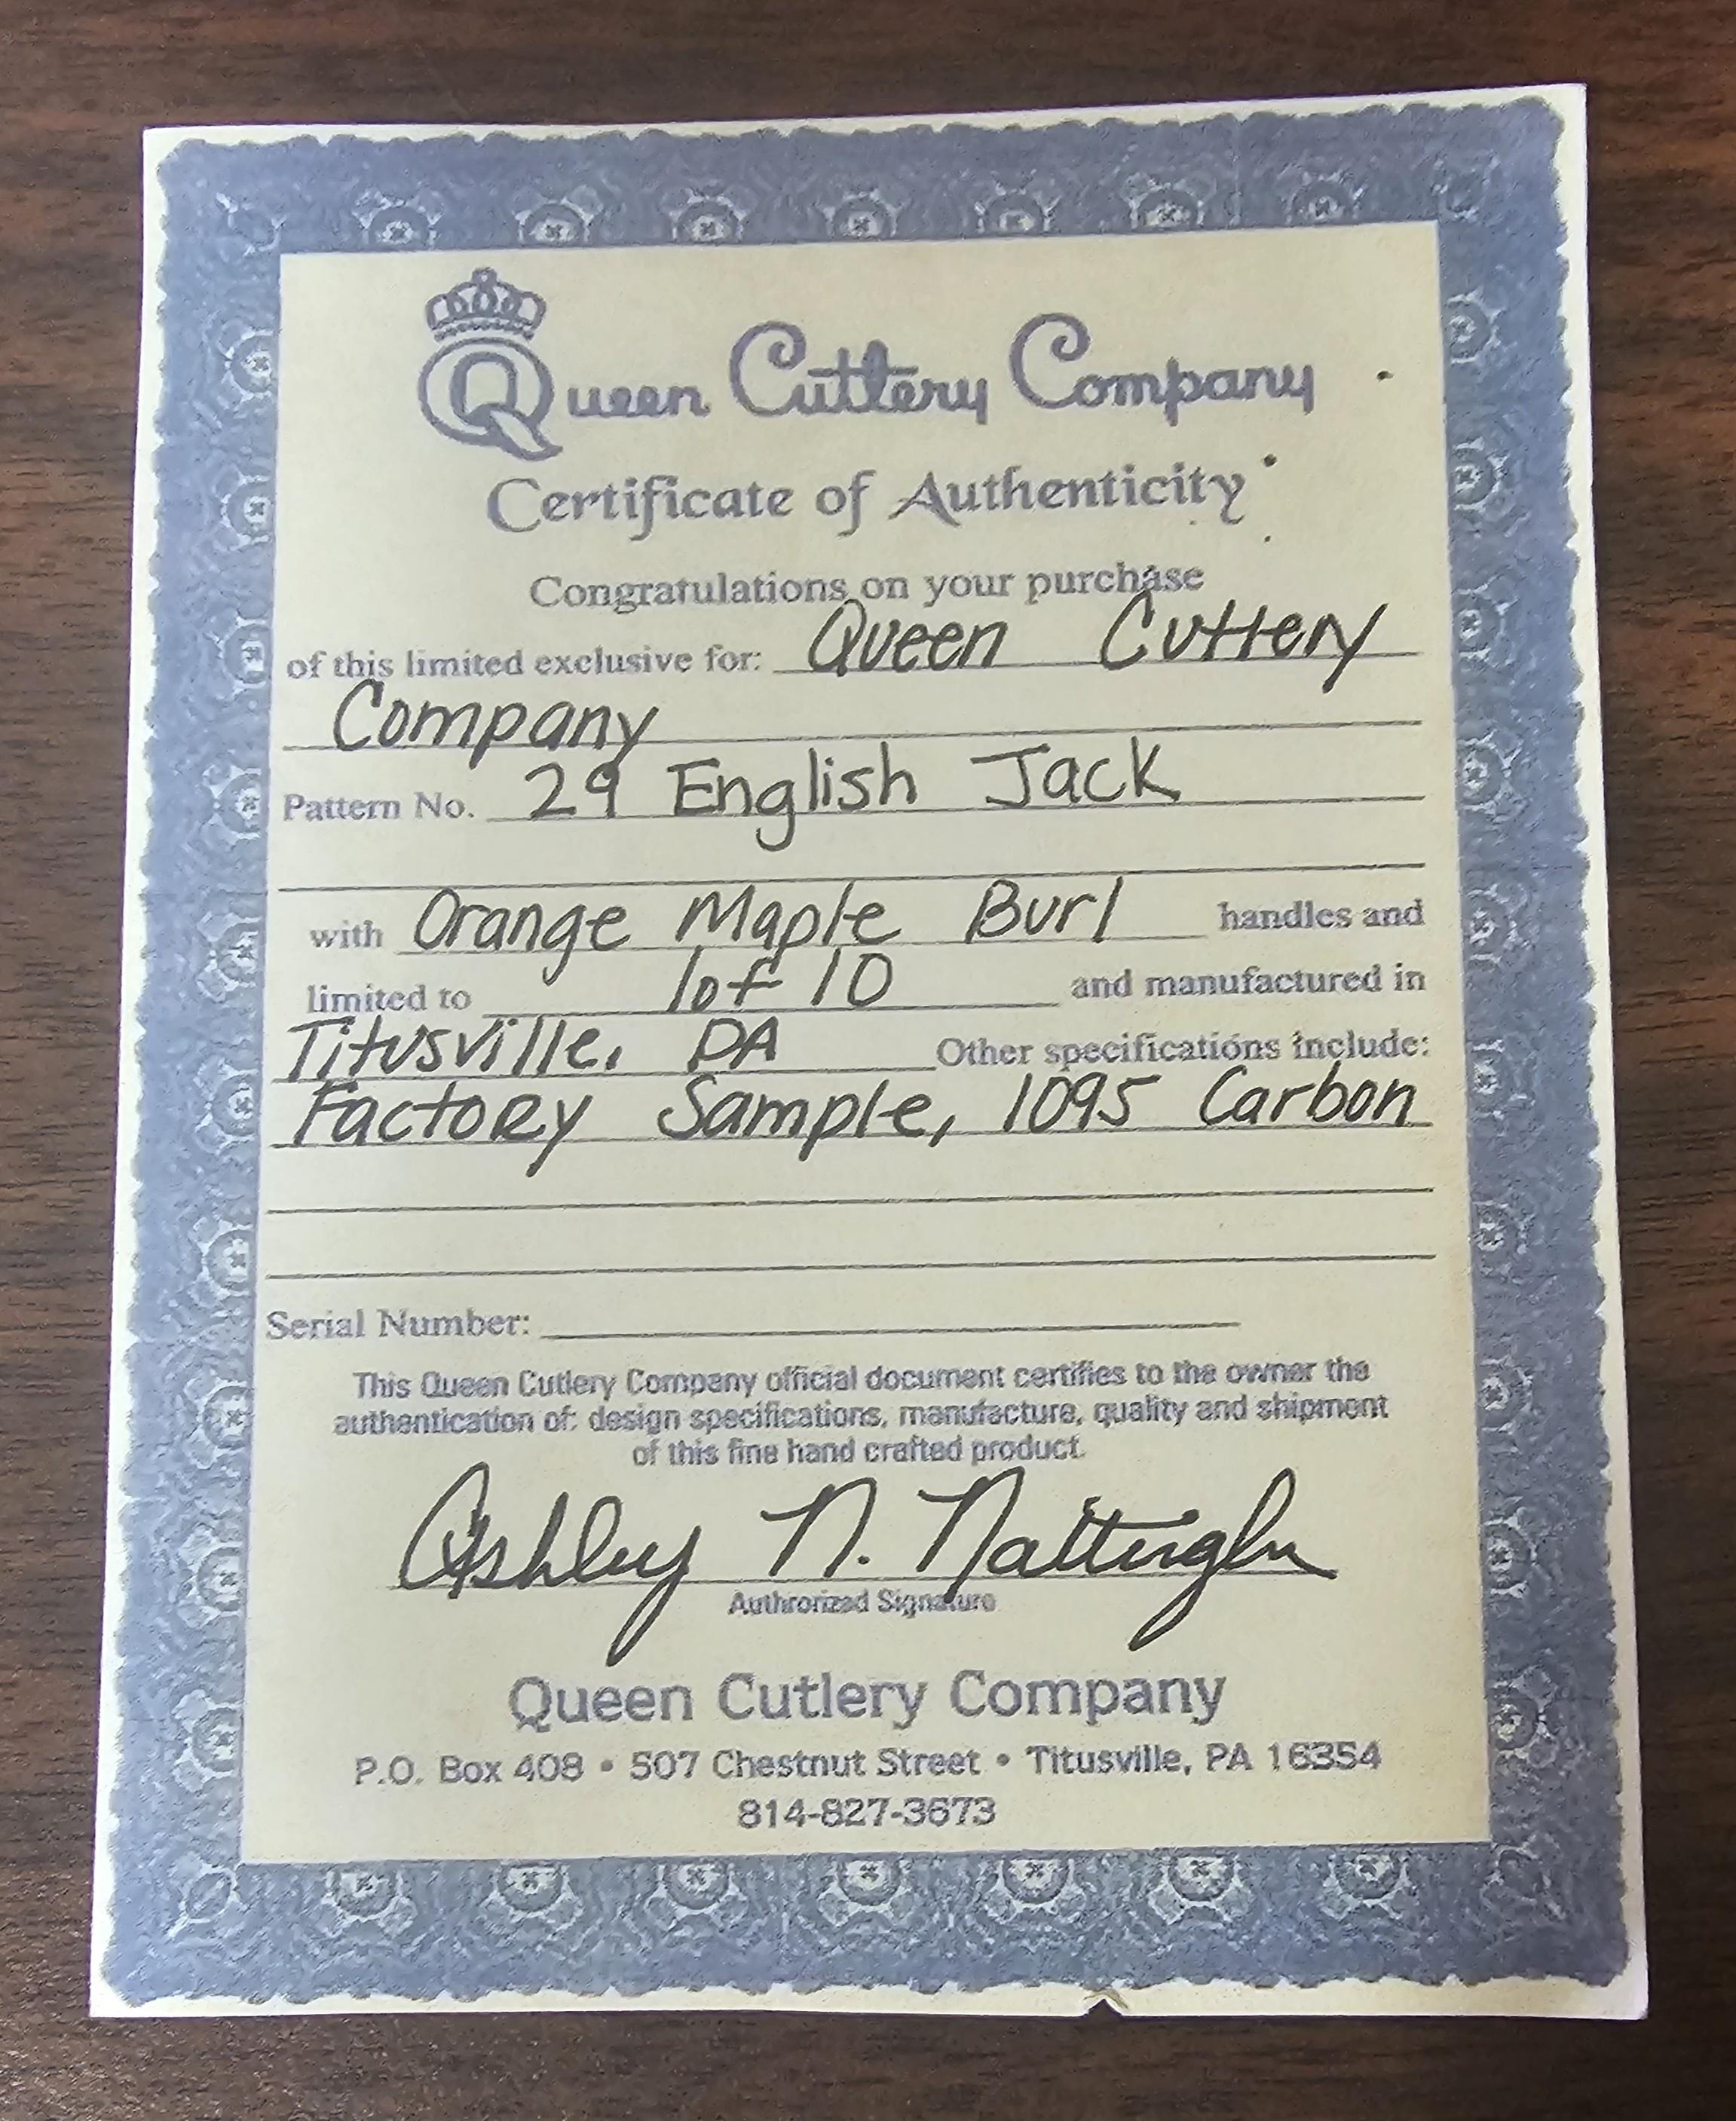 Queen Cutlery Company
Certificate of Authenticity
Congratulations on your purchase
of this limited exclusive for: Queen Cutlery
Company
Pattern No. 29 English Jack
with Orange Maple Burl handles and
limited to 1 of 10 and manufactured in
Titusville, PA Other specifications include:
Factory Sample, 1095 Carbon
Serial Number:
This Queen Cutlery Company official document certifies to the owner the
authentication of: design specifications, manufacture, quality and shipment
of this fine hand crafted product.
Ashley N.
Authrorized Signature
Queen Cutlery Company
P.O. Box 408 • 507 Chestnut Street • Titusville, PA 16354
814-827-3673